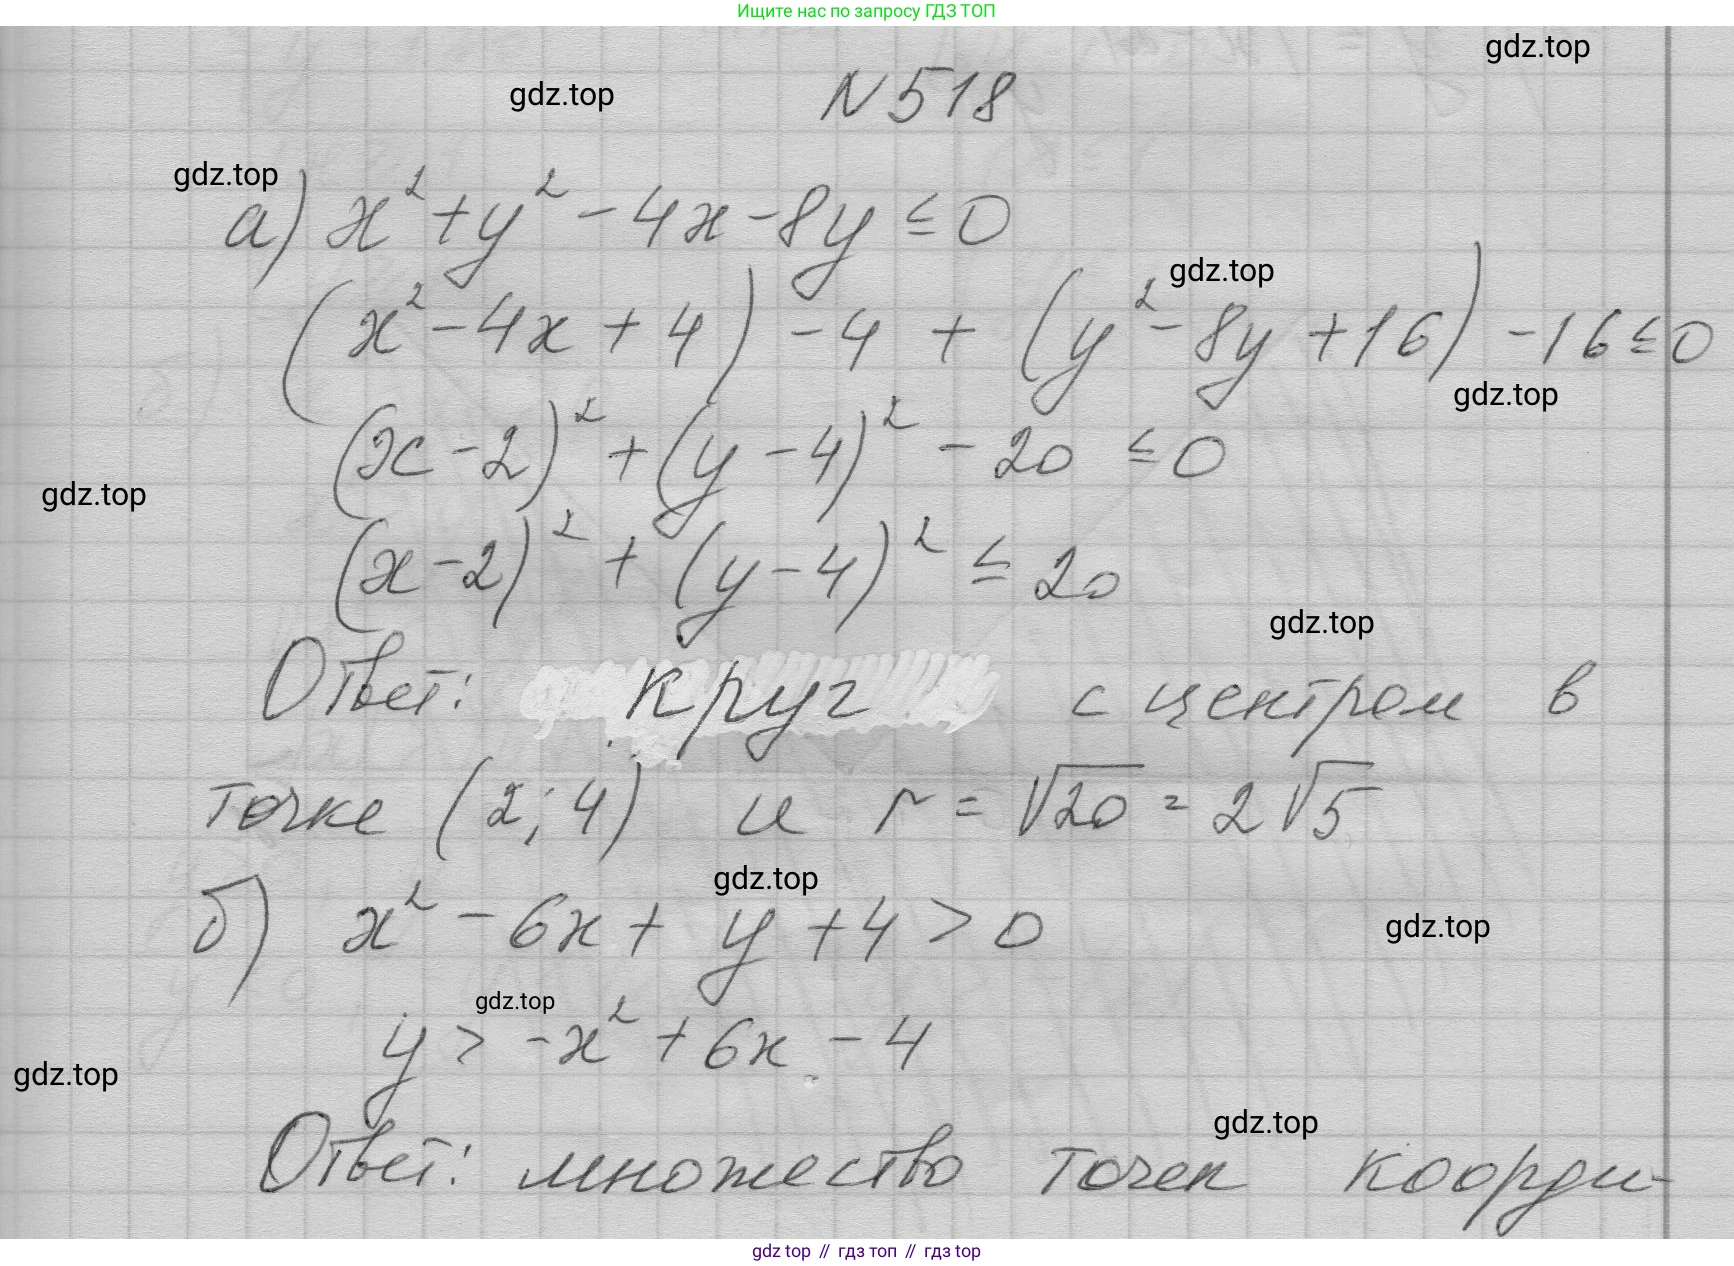 Ищите нас по запросу ГДЗ ТОП
gdz.top
gdz.top
N518
gdz.top
а) x² + y² - 4x - 8y ≤ 0
gdz.top
(x² - 4x + 4) - 4 + (y² - 8y + 16) - 16 ≤ 0
gdz.top
(x - 2)² + (y - 4)² - 20 ≤ 0
gdz.top
(x - 2)² + (y - 4)² ≤ 20
gdz.top
Ответ: круг с центром в
точке (2; 4) и r = √20 = 2√5
gdz.top
б) x² - 6x + y + 4 > 0
gdz.top
gdz.top
y > -x² + 6x - 4
gdz.top
gdz.top
Ответ: множество точек коорди-
gdz top // гдз топ // гдз top